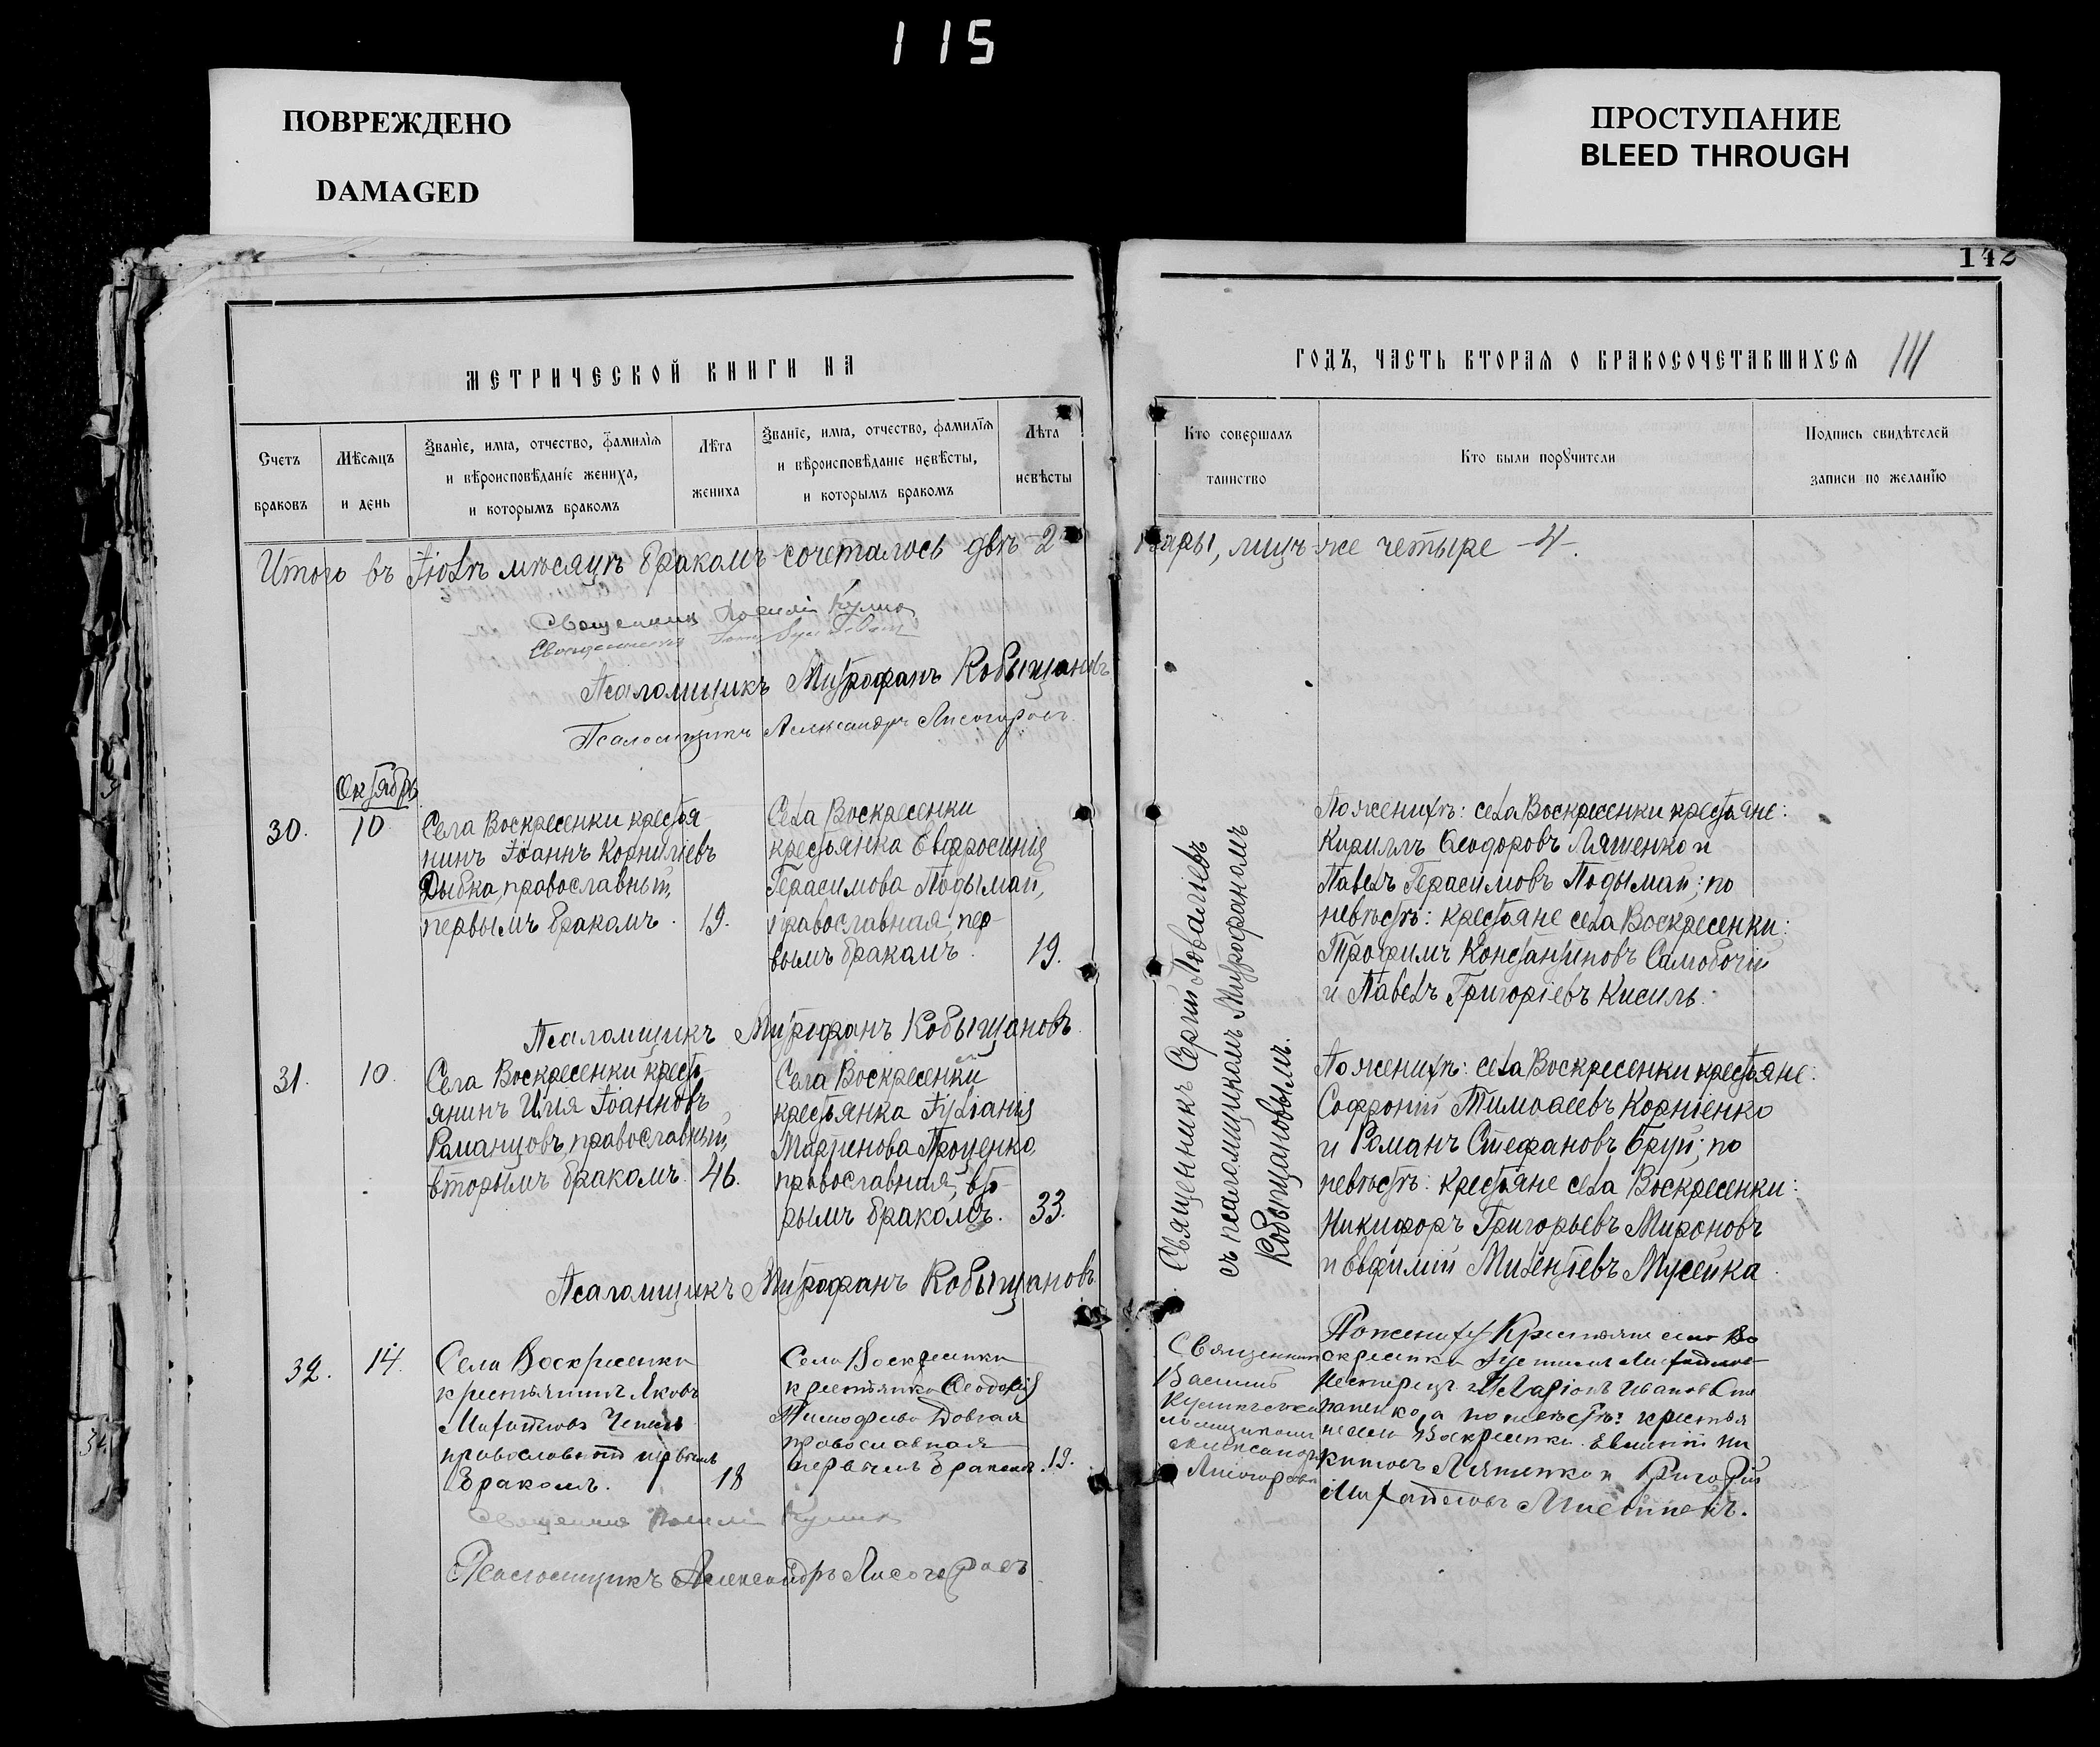 115
ПОВРЕЖДЕНО
DAMAGED
ПРОСТУПАНИЕ
BLEED THROUGH
142
МЕТРИЧЕСКОЙ КНИГИ НА
ГОДЪ, ЧАСТЬ ВТОРАЯ О БРАКОСОЧЕТАВШИХСЯ
111
Счетъ
браковъ
Мѣсяцъ
и день
Званіе, имя, отчество, фамилія
и вѣроисповѣданіе жениха,
и которымъ бракомъ
Лѣта
жениха
Званіе, имя, отчество, фамилія
и вѣроисповѣданіе невѣсты,
и которымъ бракомъ
Лѣта
невѣсты
Кто совершалъ
таинство
Кто были поручители
Подпись свидѣтелей
записи по желанію
Итого въ Іюлѣ мѣсяцѣ бракомъ сочеталось двѣ 2 пары, лицъ же четыре 4.
Священникъ Василій
Священникъ
Псаломщикъ Митрофанъ Кобыщановъ
Псаломщикъ Александръ Лисогоровъ
Октябрь
30.
10
Села Воскресенки крестья
нинъ Іоаннъ Корниліевъ
Дыбка, православный,
первымъ бракомъ.
19.
Села Воскресенки
крестьянка Евфросинія
Герасимова Подымай,
православная, пер-
вымъ бракомъ.
19.
Священникъ Сергій Поваліевъ
съ псаломщикомъ Митрофаномъ
Кобыщановымъ.
По женихѣ: села Воскресенки крестьяне:
Кириллъ Ѳеодоровъ Ляшенко и
Павелъ Герасимовъ Подымай; по
невѣстѣ: крестьяне села Воскресенки:
Трофимъ Константиновъ Самобочій
и Павелъ Григоріевъ Кисиль.
Псаломщикъ Митрофанъ Кобыщановъ.
31.
10.
Села Воскресенки кресть-
янинъ Илія Іоанновъ
Романцовъ, православный,
вторымъ бракомъ.
46.
Села Воскресенки
крестьянка Іуліанія
Мартинова Проценко,
православная, вто-
рымъ бракомъ.
33.
По женихѣ: села Воскресенки крестьяне:
Софроній Тимоѳеевъ Корніенко
и Романъ Стефановъ Бруй; по
невѣстѣ: крестьяне села Воскресенки:
Никифоръ Григорьевъ Мироновъ
и Евфимій Милентіевъ Мусейка
Псаломщикъ Митрофанъ Кобыщановъ.
32.
14.
Села Воскресенки
крестьянинъ Яковъ
Михайловъ
православный первымъ
бракомъ.
18
Села Воскресенки
крестьянка Ѳеодосія
Тимофеева Довгая
православная
первымъ бракомъ.
19.
Священникъ
Василій
Александръ
Лисогоровъ
По жениху крестьяне села Во
скресенки
Иларіонъ Ивановъ Сте
паненко, а по невѣстѣ: крестья
не села Воскресенки
китовъ Ляшенко и Григорій
Михайловъ
Священникъ Василій
Псаломщикъ Александръ Лисогоровъ